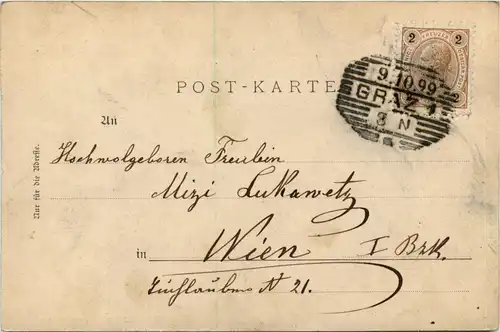 2 KREUZER 2
9.10.99
GRAZ 1
8 N
2
POST-KARTE
An
Hochwolgeboren Freulein
Mizi Lukawetz
in Wien I Bzk.
Tuchlauben N 21.
Nur für die Adresse.